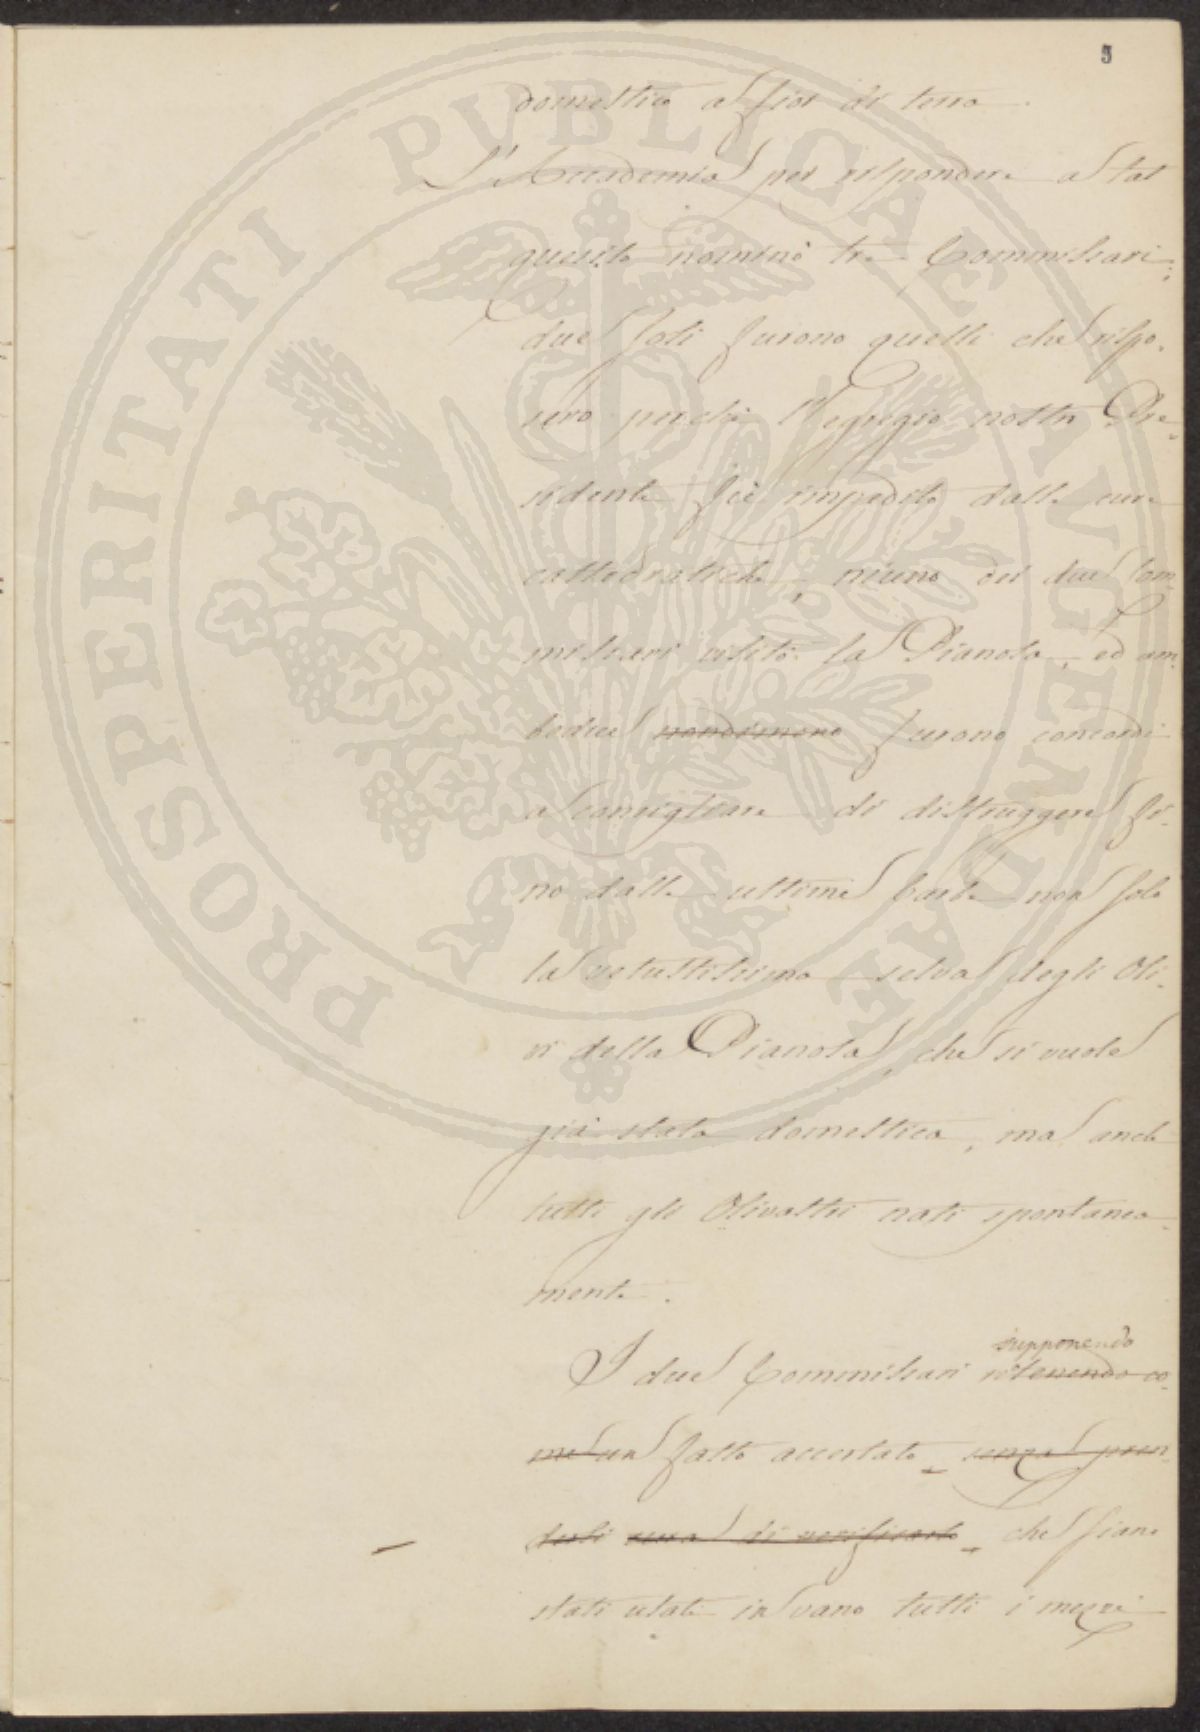 5
domestica a fior di terra.
L'Accademia per rispondere a tal
quesito nominò tre Commissari;
due soli furono quelli che rispo-
sero perchè l'egregio nostro Pre-
sidente fu impedito dalle cure
cattedratiche, niuno dei due Com-
missari visitò la Pianola, ed am-
bedue nondimeno furono concordi
a consigliare di distruggere fi-
no dalle ultime barbe non solo
la vetustissima selva degli Oli-
vi della Pianola, che si vuole
già stata domestica, ma anche
tutti gli Olivastri nati spontanea-
mente.
supponendo
I due Commissari ritenendo co-
me un fatto accertato, senza pren-
dersi cura di verificarlo, che siano
stati usati invano tutti i mezzi
PROSPERITATI PVBLICAE AVGENDAE